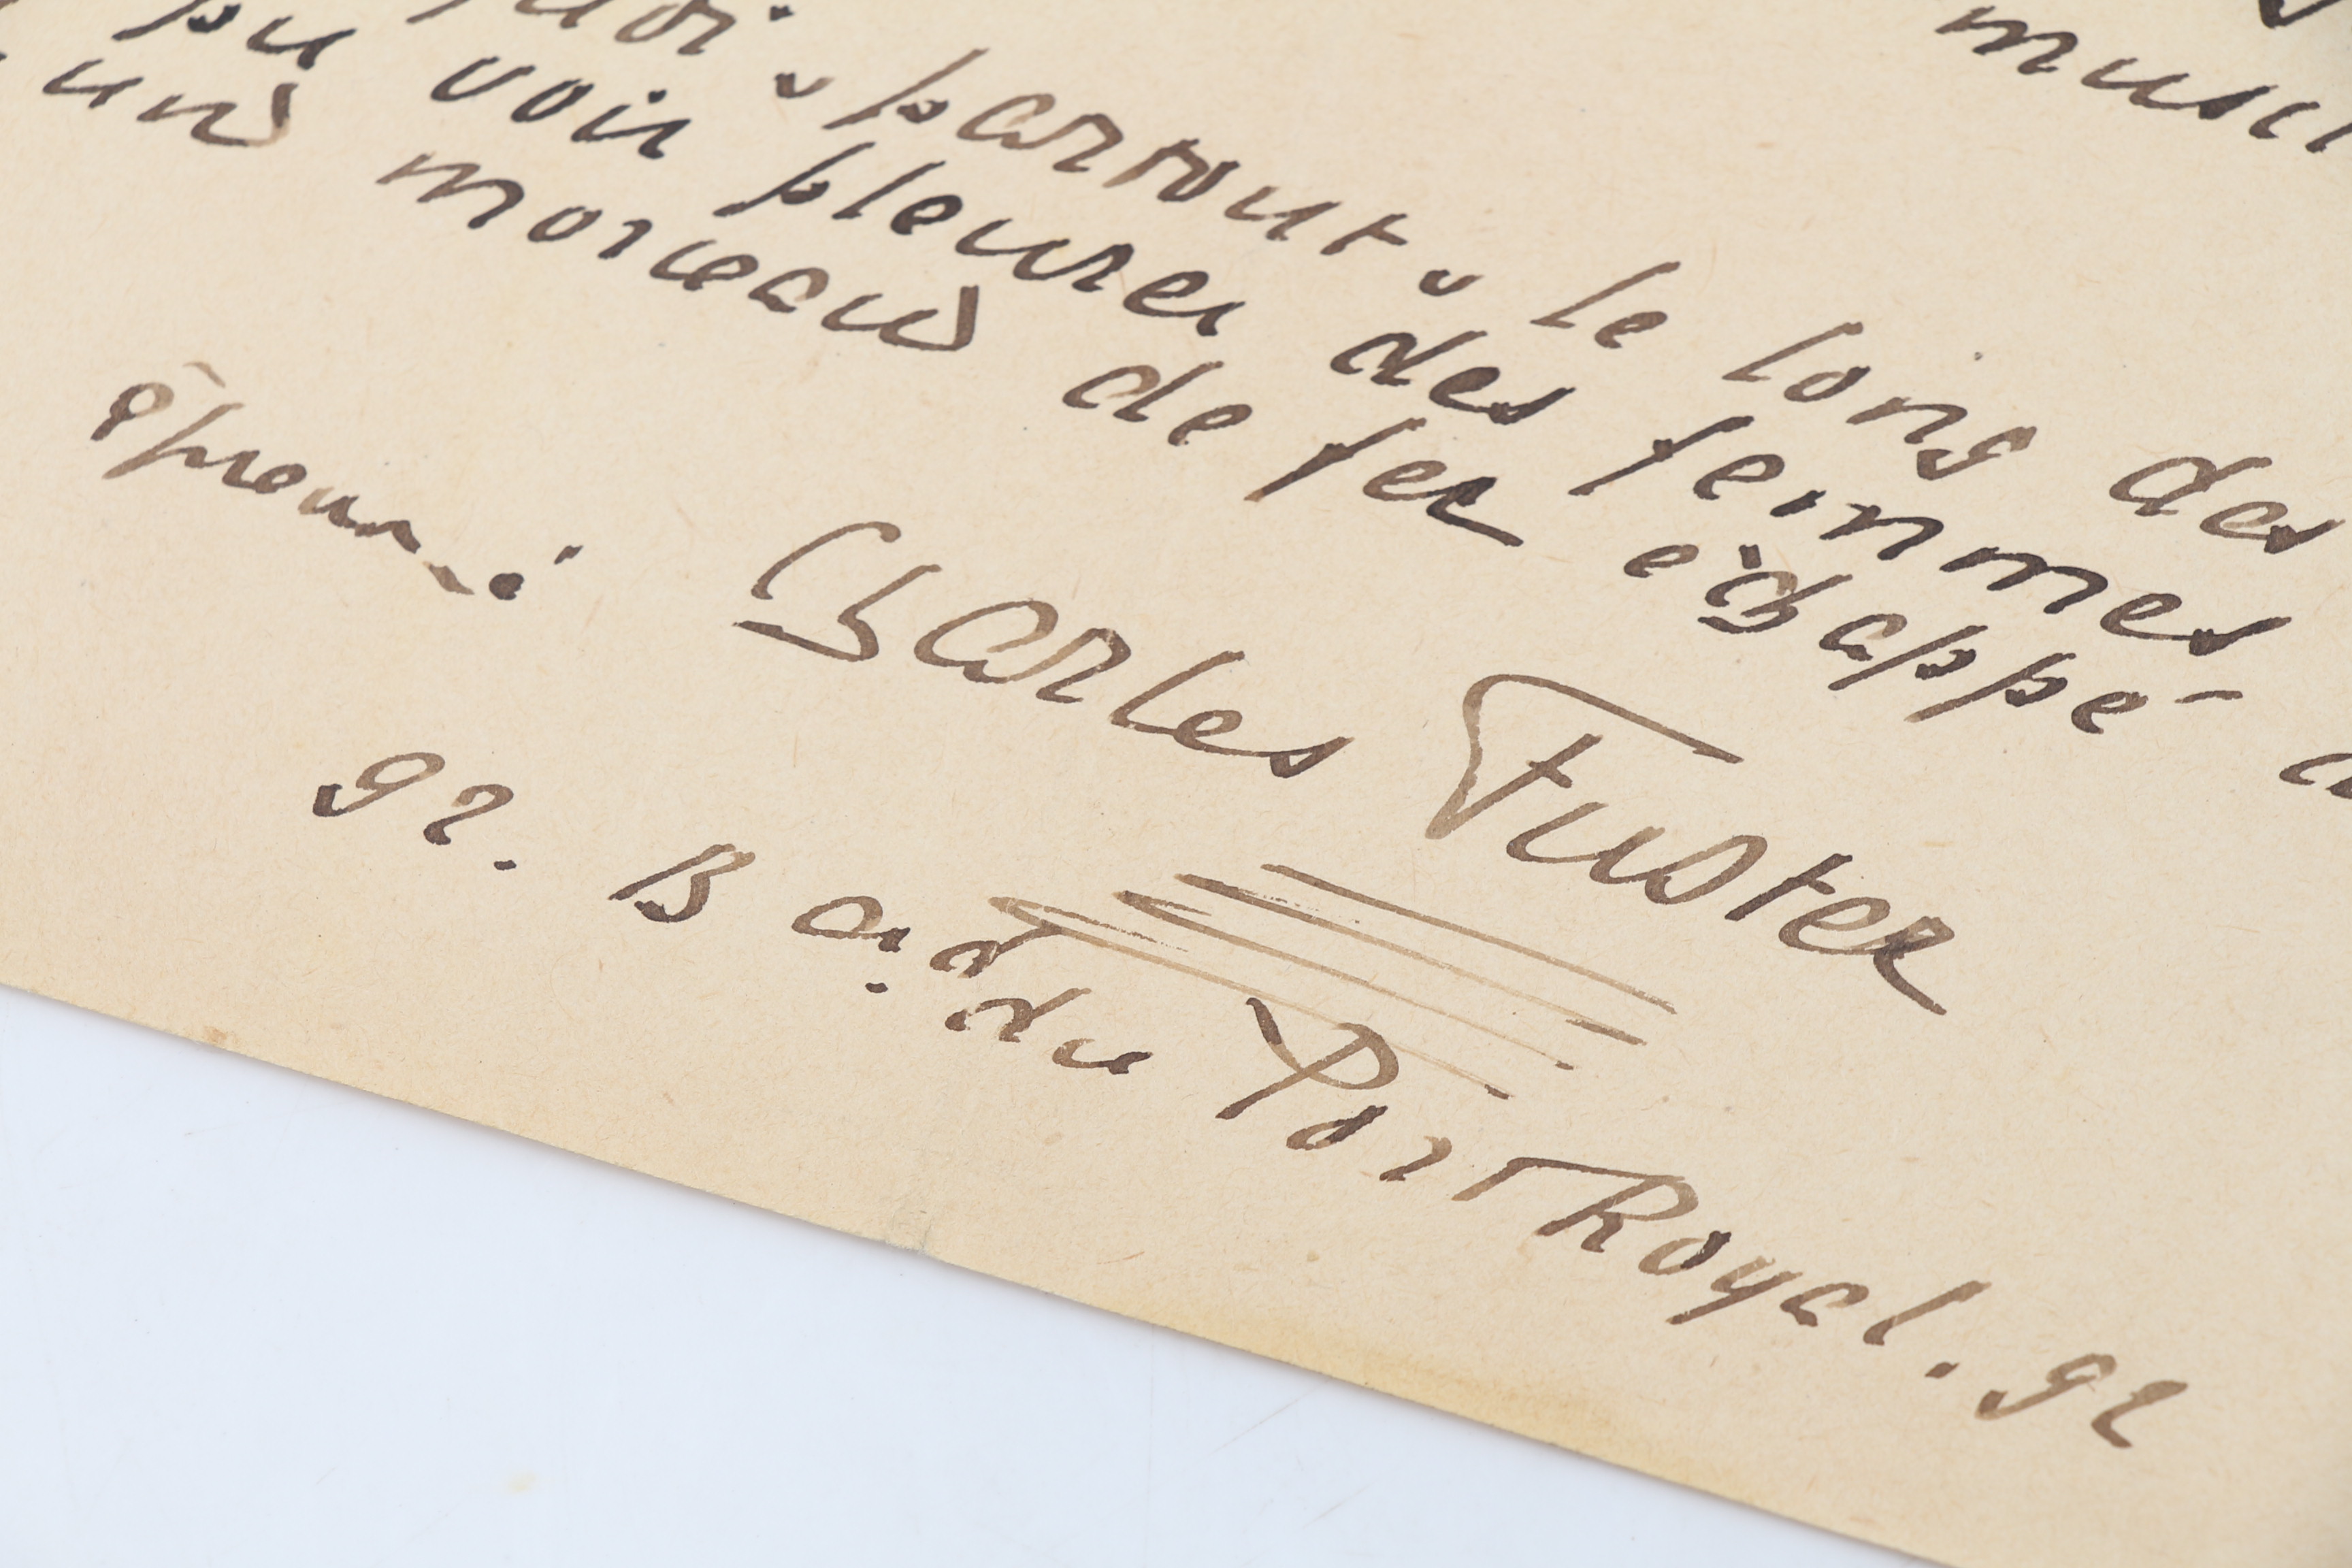 partout, le long des
pu voir pleurer des femmes
morceaux de fer échappé
Charles Fuster
92. Bard du Port Royal. 92